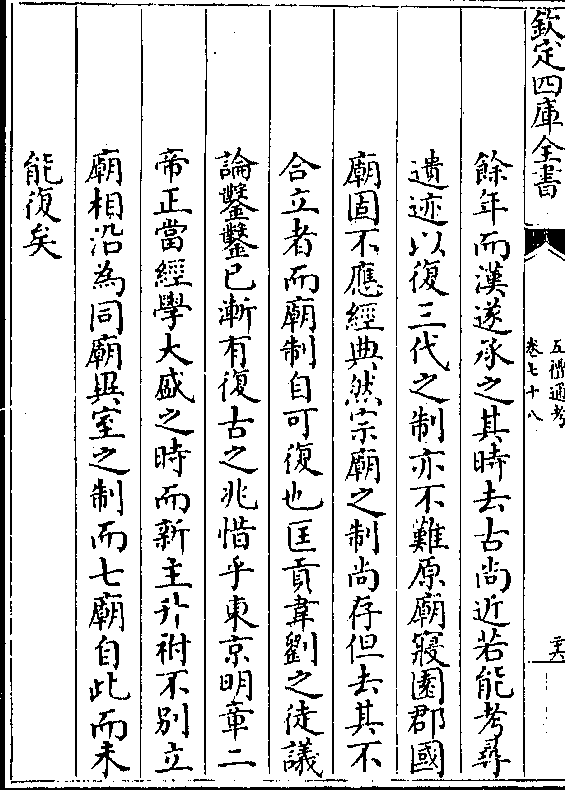 欽定四庫全書
五禮通考
卷七十八
餘年而漢遂承之其時去古尚近若能考尋
遺迹以復三代之制亦不難原廟寢園郡國
廟固不應經典然宗廟之制尚存但去其不
合立者而廟制自可復也匡貢韋劉之徒議
論鑿鑿已漸有復古之兆惜乎東京明章二
帝正當經學大盛之時而新主升祔不别立
廟相沿為同廟異室之制而七廟自此而未
能復矣